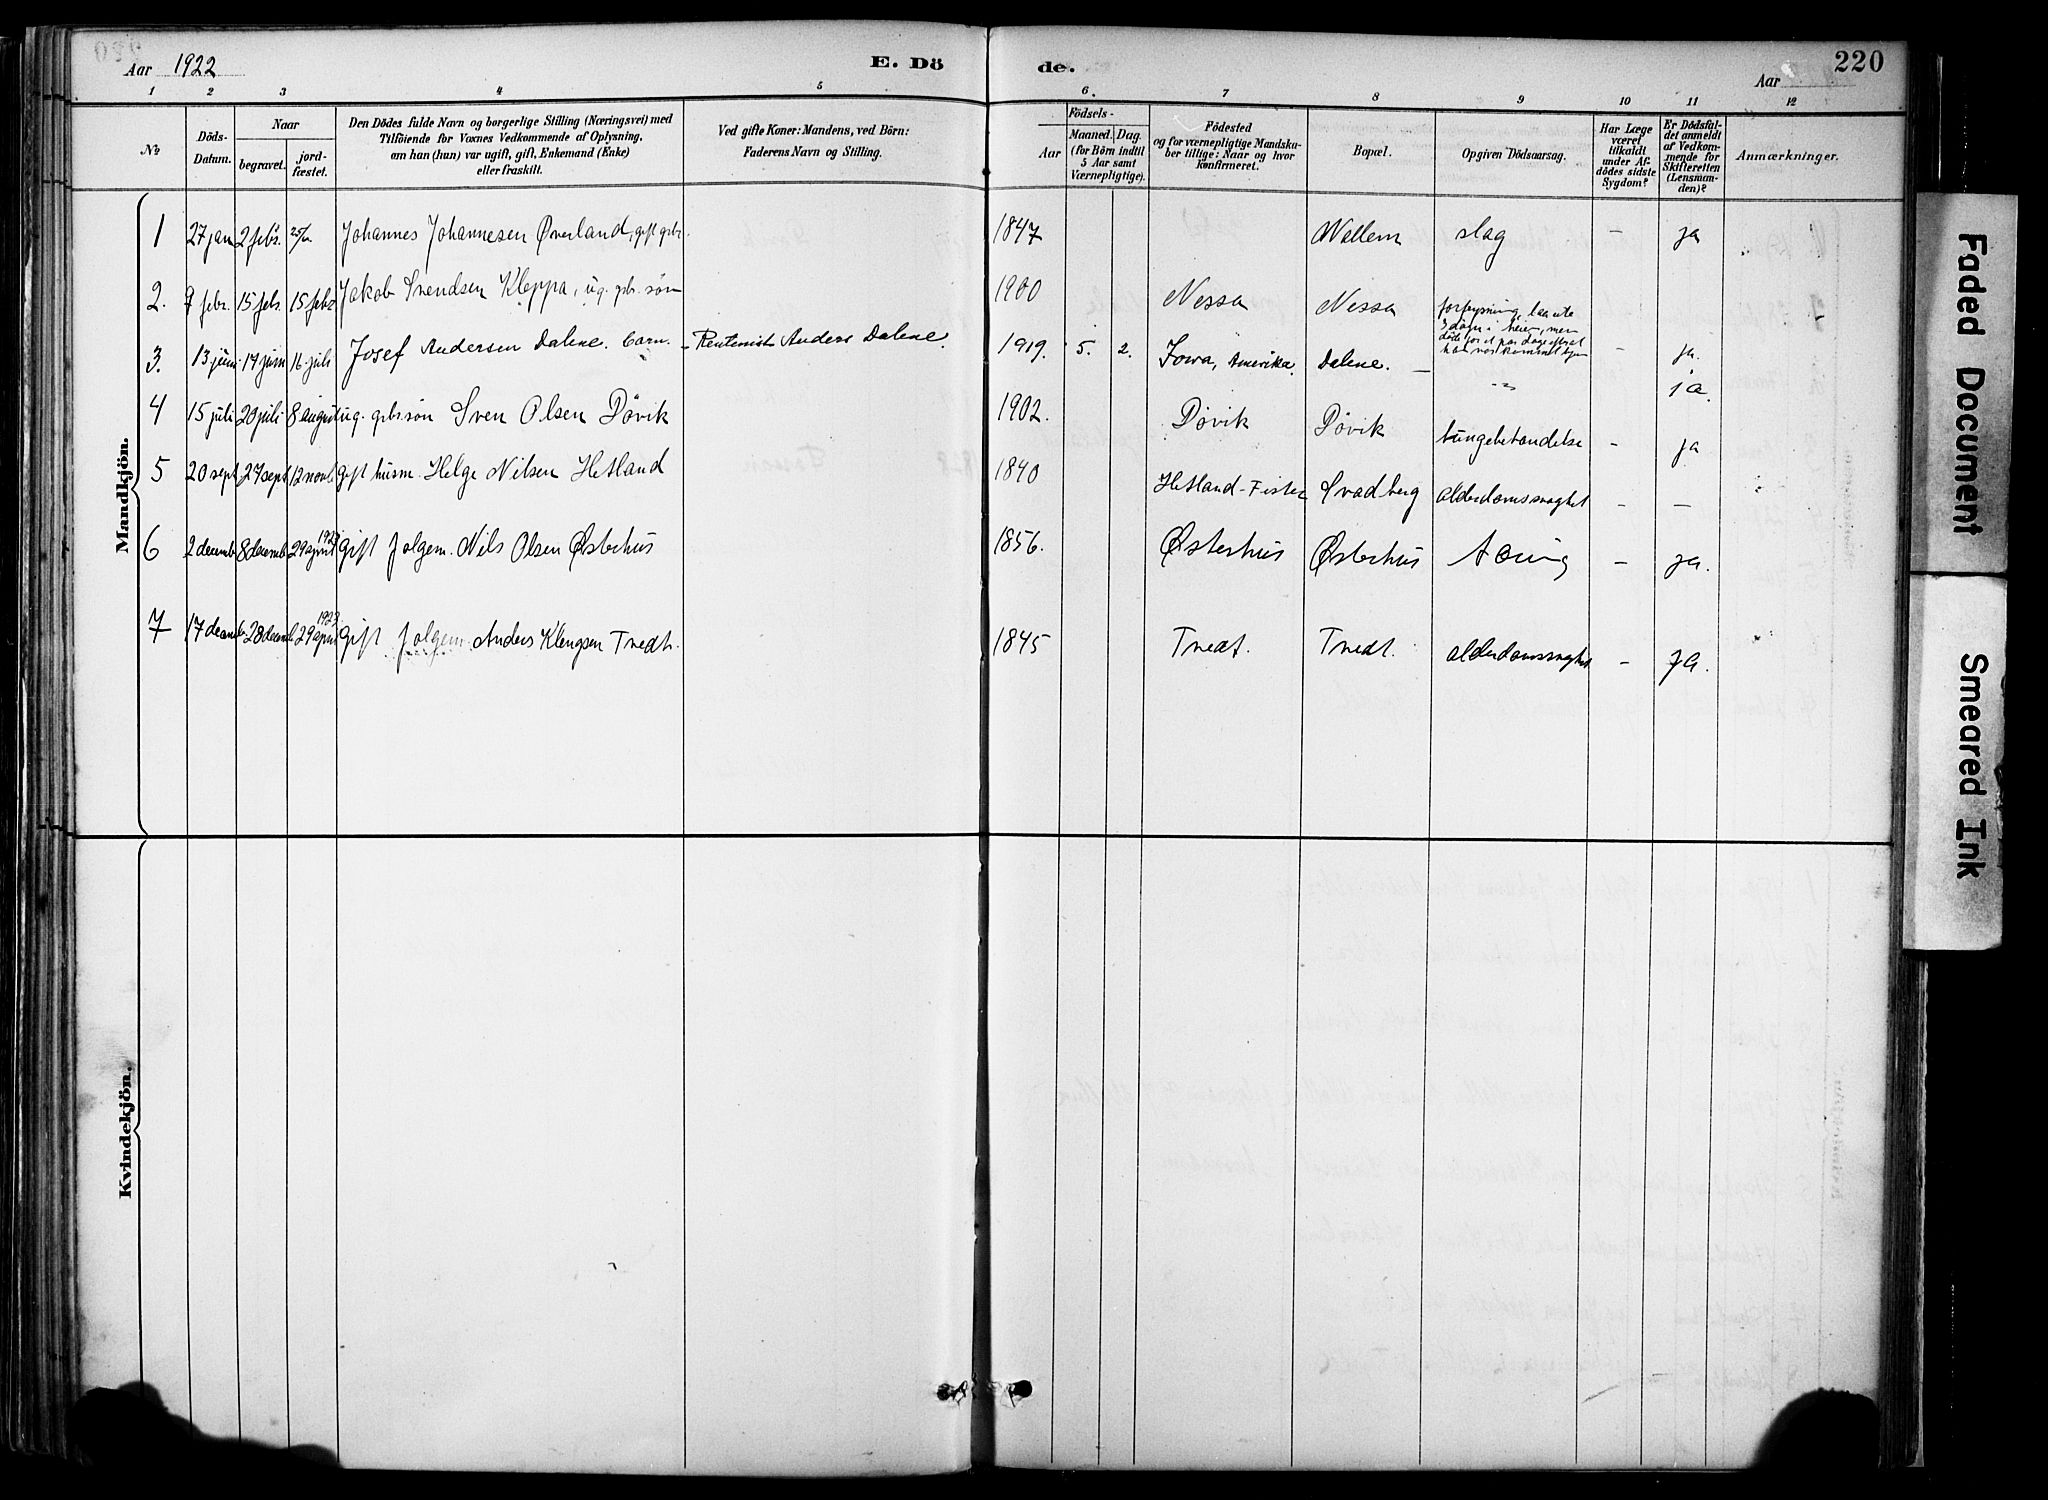 220
Aar 1922
E. Dö
de.
Aar
1 2 3 4 5 6. 7 8 9 10 11 12
№
Döds-Datum.
Naar
begravet. jordfæstet.
Den Dödes fulde Navn og borgerlige Stilling (Næringsvei) med
Tilföiende for Voxnes Vedkommende af Oplysning,
om han (hun) var ugift, gift, Enkemand (Enke)
eller fraskilt.
Ved gifte Koner: Mandens, ved Börn:
Faderens Navn og Stilling.
Födsels-
Aar Maaned. Dag.
(for Börn indtil
5 Aar samt
Værnepligtige).
Födested
og for værnepligtige Mandska-
ber tillige: Naar og hvor
konfirmeret.
Bopæl.
Opgiven Dödsaarsag.
Har Læge
været
tilkaldt
under Af-
dödes sidste
Sygdom?
Er Dödsfal-
det anmeldt
af Vedkom-
mende for
Skifteretten
(Lensman-
den)?
Anmærkninger.
Mandkjön.
1 27 jan 2 febr. 25/6 Johannes Johannesen Øverland, gift gbr. 1847 Vellem slag - ja
2. 7 febr. 15 febr. 15 febr Jakob Svendsen Kleppa, ug. gbr. søn 1900 Nessa Nessa forfrysning, laa ute
3 døgn i heien, men
døde for et par dage efter at
han var kommet hjem - ja.
3. 13 juni 17 juni 16 juli Josef Andersen Dalene. barn. - Rentenist Anders Dalene. 1919. 5. 2. Iowa, Amerika. Dalene. - -"- ja.
4 15 juli 20 juli 8 august ug. gbr. søn Sven Olsen Døvik 1902. Døvik Døvik lungebetændelse - ja
5 20 sept. 27 sept. 12 novb gift husm. Helge Nilsen Hetland 1840 Hetland-Fister Svadberg alderdomssvaghet - -
6 2 decemb 8 decemb 29 april 1923 Gift folgem. Nils Olsen Østerhus 1856. Østerhus Østerhus tæring - ja.
7 17 decemb. 28 decemb 29 april 1923 Gift folgem. Anders Klengsen Tvedt. 1845 Tvedt. Tvedt. alderdomssvaghet - ja.
Kvindekjön.
Faded Document
Smeared Ink